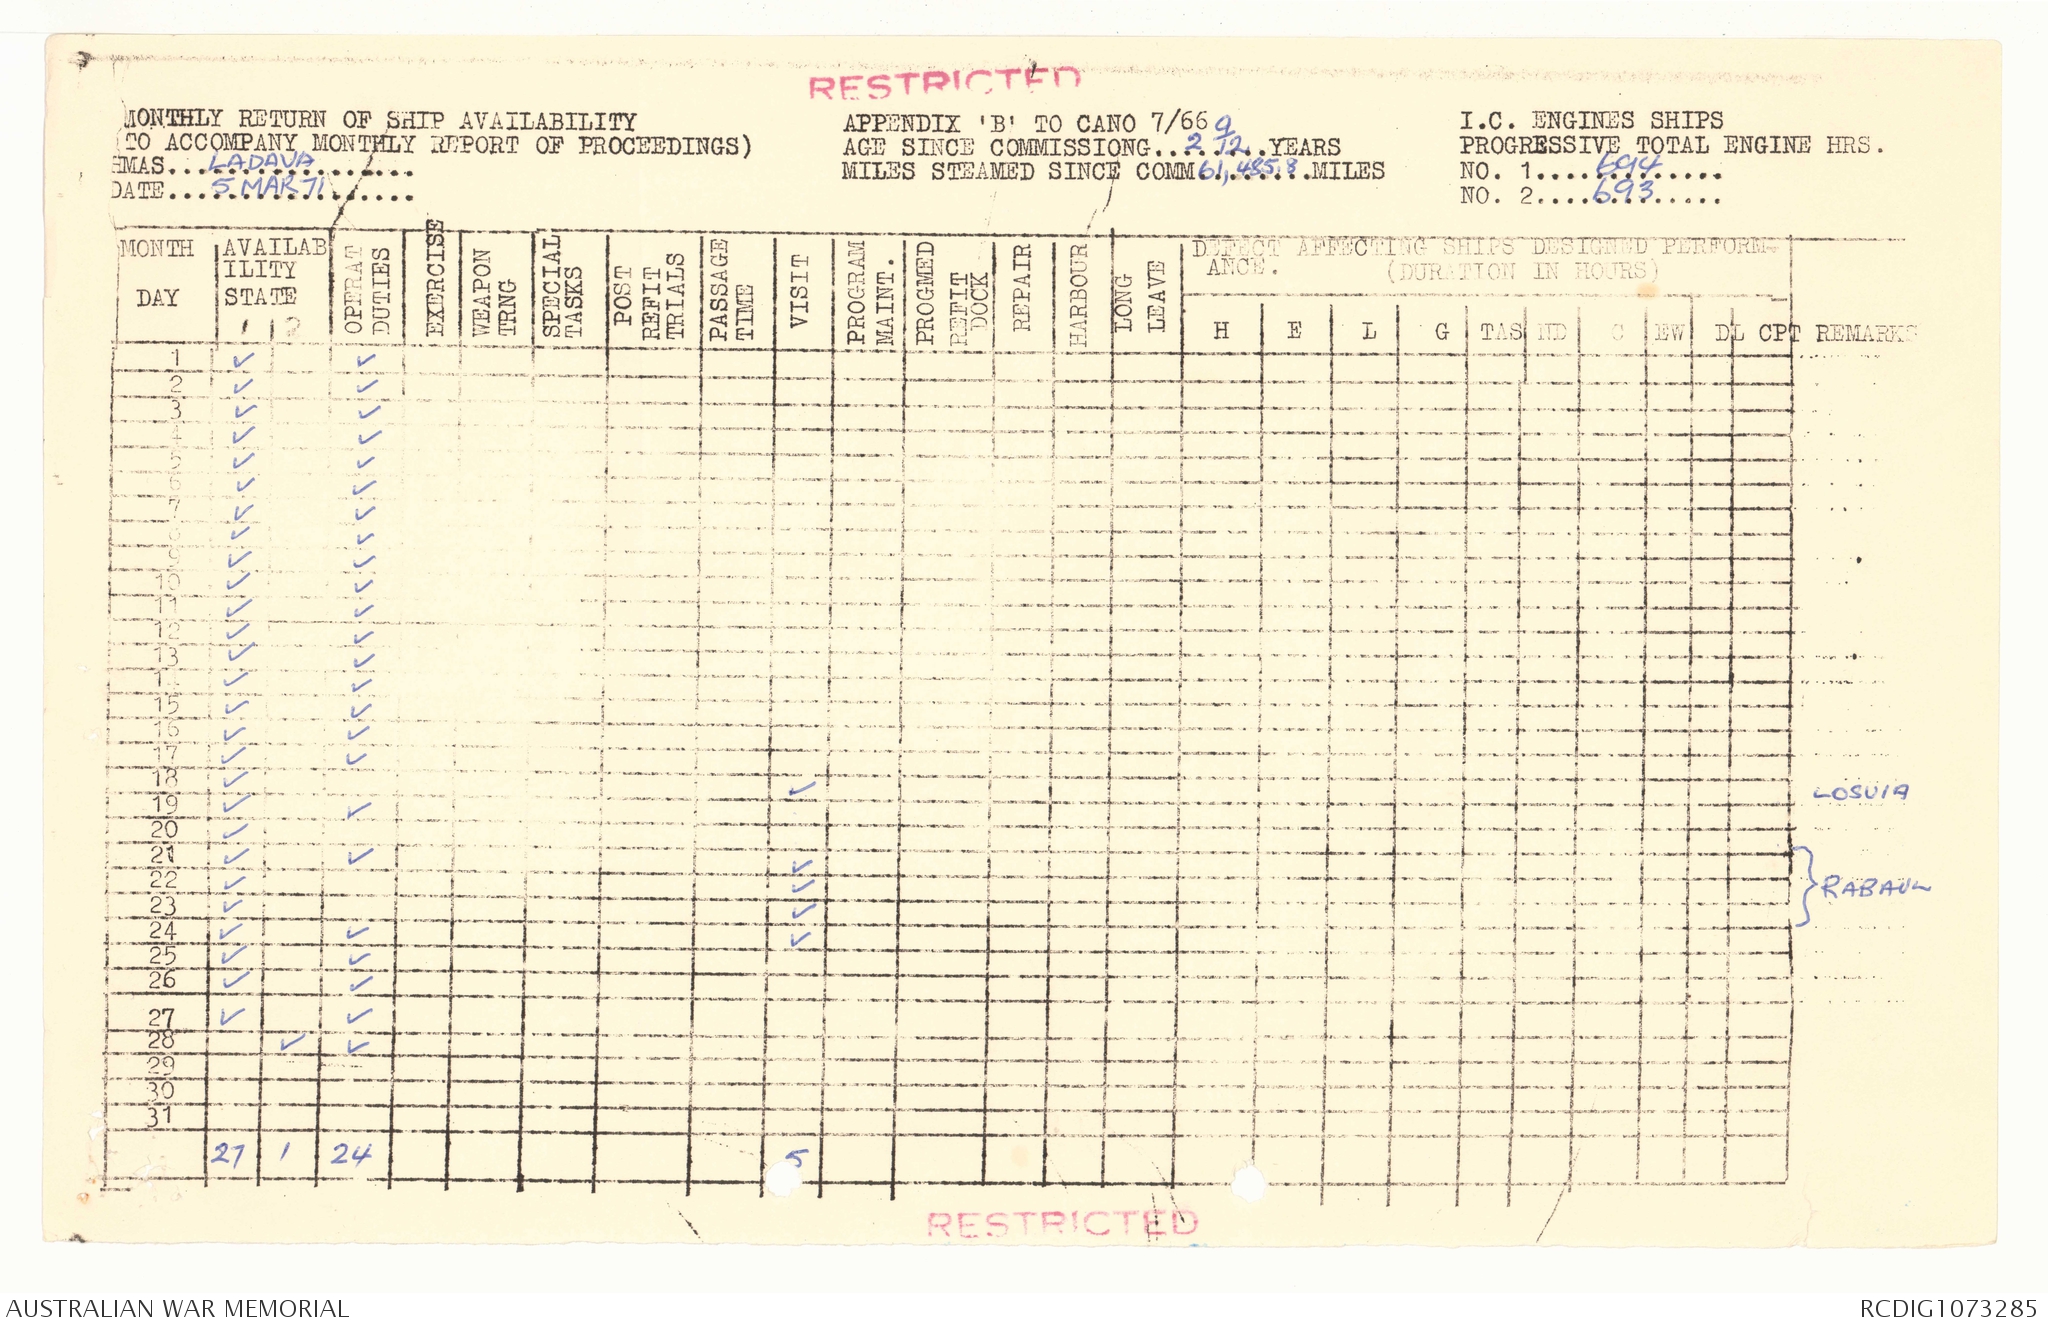 RESTRICTED
MONTHLY RETURN OF SHIP AVAILABILITY
(TO ACCOMPANY MONTHLY REPORT OF PROCEEDINGS)
HMAS...LADAVA..............
DATE....5 MAR 71...........
APPENDIX 'B' TO CANO 7/66
AGE SINCE COMMISSIONG...2 9/12..YEARS
MILES STEAMED SINCE COMM61,485.8.MILES
I.C. ENGINES SHIPS
PROGRESSIVE TOTAL ENGINE HRS.
NO. 1....694.........
NO. 2....693.........
MONTH DAY
AVAILAB ILITY STATE
1 2
OPERAT DUTIES
EXERCISE
WEAPON TRNG
SPECIAL TASKS
POST REFIT TRIALS
PASSAGE TIME
VISIT
PROGRAM MAINT.
PROGMED REFIT DOCK
REPAIR
HARBOUR
LONG LEAVE
DEFECT AFFECTING SHIPS DESIGNED PERFORM-
ANCE. (DURATION IN HOURS)
H E L G TAS ND C EW DL CPT REMARKS
1 ✓ ✓
2 ✓ ✓
3 ✓ ✓
4 ✓ ✓
5 ✓ ✓
6 ✓ ✓
7 ✓ ✓
8 ✓ ✓
9 ✓ ✓
10 ✓ ✓
11 ✓ ✓
12 ✓ ✓
13 ✓ ✓
14 ✓ ✓
15 ✓ ✓
16 ✓ ✓
17 ✓ ✓
18 ✓ ✓ LOSUIA
19 ✓ ✓
20 ✓
21 ✓ ✓ ✓
22 ✓ ✓ RABAUL
23 ✓ ✓
24 ✓ ✓ ✓
25 ✓ ✓
26 ✓ ✓
27 ✓ ✓
28 ✓ ✓
29
30
31
27 1 24 5
RESTRICTED
AUSTRALIAN WAR MEMORIAL
RCDIG1073285